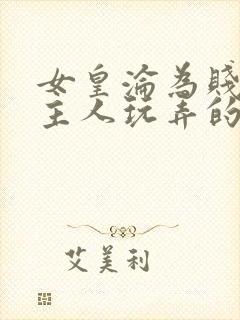 女皇淪為賤
主人玩弄的
艾美利